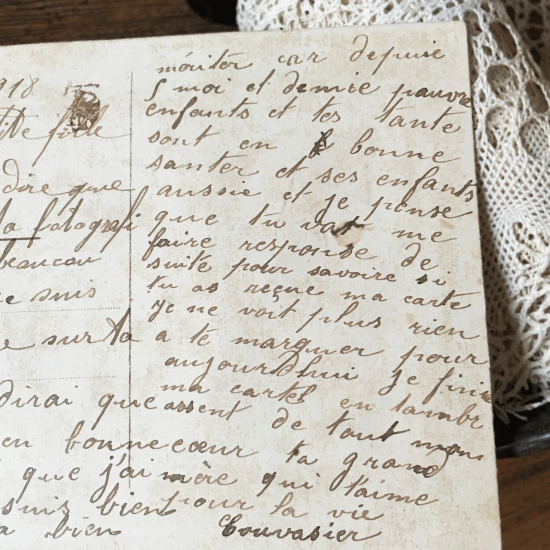 1918
fille
dire que
la fotografi
beaucau
suis
sur ta
dirai que
en bonne
que j'ai
suis bien
a bien
mériter car depuie
5 moi et demie pauvre
enfants et tes tante
sont en bonne
santer et ses enfants
aussie et je pense
que tu vat me
faire response de
suite pour savoire si
tu as reçue ma carte
je ne voit plus rien
a te marquer pour
aujourdhui je finie
ma carte en
assent de tout mon
cœur ta grand
mère qui t'aime
pour la vie
Couvasier